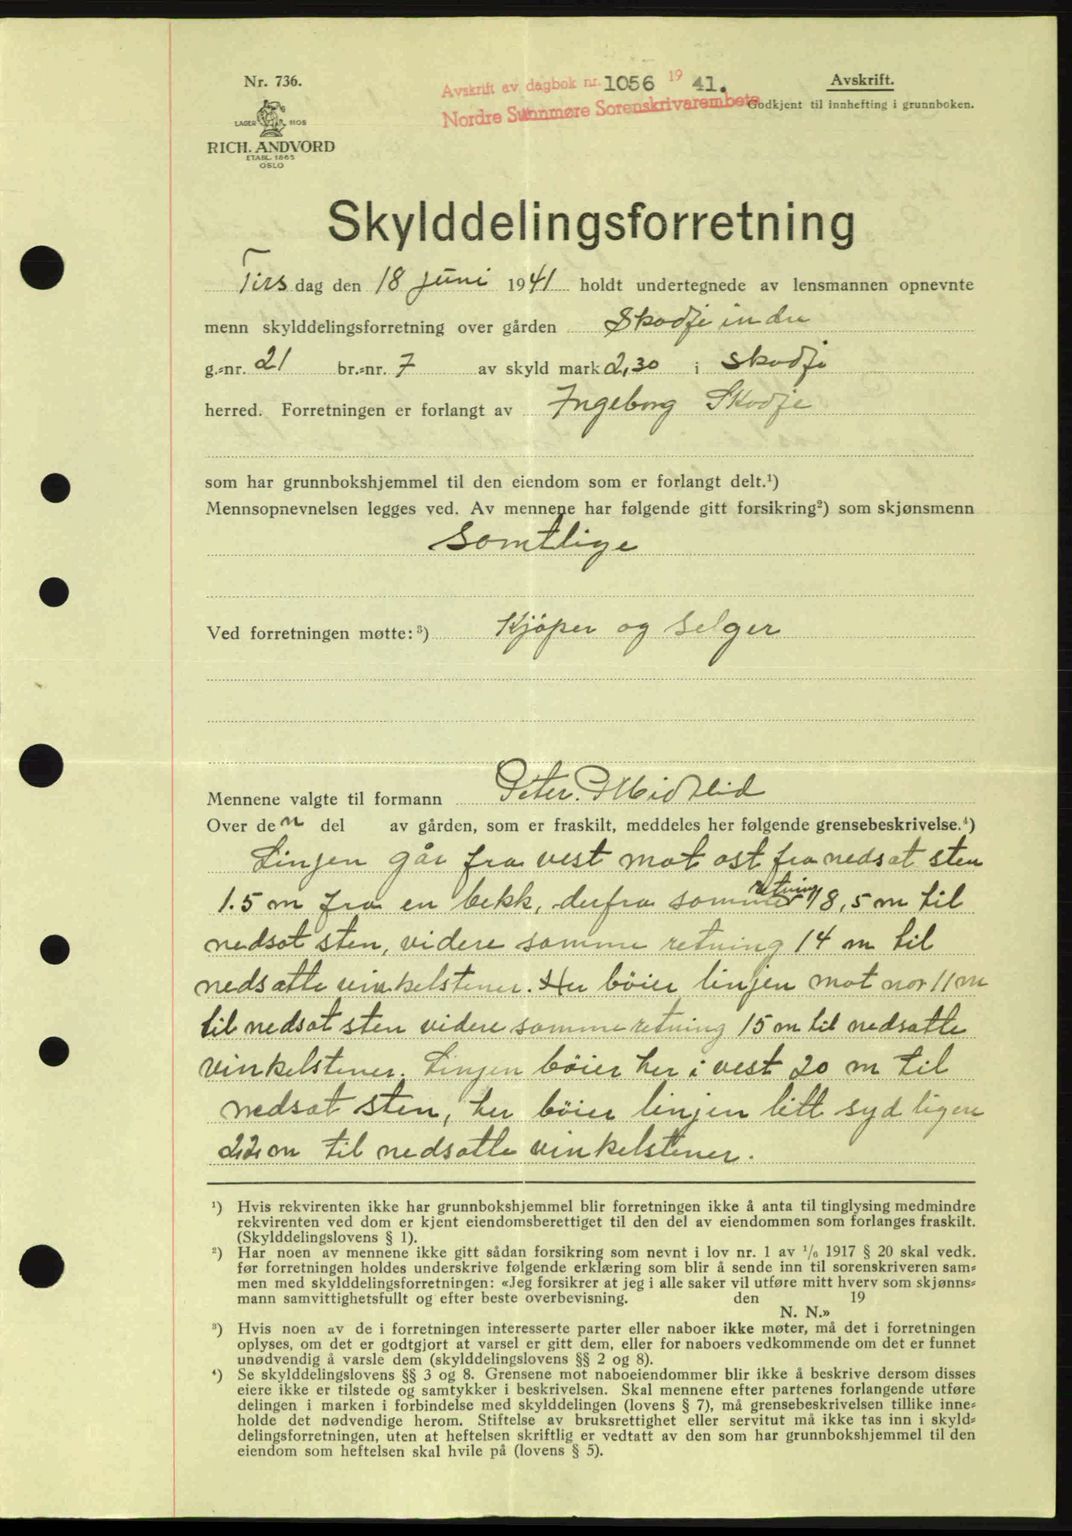 Nr. 736.
LAGER 1108
RICH. ANDVORD
ETABL. 1865
OSLO
Avskrift av dagbok nr. 1056 1941.
Nordre Sunnmøre Sorenskrivarembete
Avskrift.
Godkjent til innhefting i grunnboken.
Skylddelingsforretning
Tirsdag den 18 juni 1941 holdt undertegnede av lensmannen opnevnte
menn skylddelingsforretning over gården Skodje indre
g.-nr. 21 br.-nr. 7 av skyld mark 2,30 i Skodje
herred. Forretningen er forlangt av Ingeborg Skodje
som har grunnbokshjemmel til den eiendom som er forlangt delt.¹)
Mennsopnevnelsen legges ved. Av mennene har følgende gitt forsikring²) som skjønsmenn
Samtlige
Ved forretningen møtte:³) Kjöper og selger
Mennene valgte til formann Peter. P. Midtlid
Over den del av gården, som er fraskilt, meddeles her følgende grensebeskrivelse.⁴)
Linjen går fra vest mot ost fra nedsat sten
1.5 m fra en bekk, derfra samme retning 18,5 m til
nedsat sten, videre samme retning 14 m til
nedsatte vinkelstener. Her böier linjen mot nor 11 m
til nedsat sten videre samme retning 15 m til nedsatte
vinkelstener. Linjen böier her i vest 20 m til
nedsat sten, her böier linjen litt sydligere
22 m til nedsatte vinkelstener.
¹) Hvis rekvirenten ikke har grunnbokshjemmel blir forretningen ikke å anta til tinglysing medmindre
rekvirenten ved dom er kjent eiendomsberettiget til den del av eiendommen som forlanges fraskilt.
(Skylddelingslovens § 1).
²) Har noen av mennene ikke gitt sådan forsikring som nevnt i lov nr. 1 av ¹/₆ 1917 § 20 skal vedk.
før forretningen holdes underskrive følgende erklæring som blir å sende inn til sorenskriveren sam-
men med skylddelingsforretningen: «Jeg forsikrer at jeg i alle saker vil utføre mitt hverv som skjønns-
mann samvittighetsfullt og efter beste overbevisning. den 19
N. N.»
³) Hvis noen av de i forretningen interesserte parter eller naboer ikke møter, må det i forretningen
oplyses, om det er godtgjort at varsel er gitt dem, eller for naboers vedkommende om det er funnet
unødvendig å varsle dem (skylddelingslovens §§ 2 og 8).
⁴) Se skylddelingslovens §§ 3 og 8. Grensene mot naboeiendommer blir ikke å beskrive dersom disses
eiere ikke er tilstede og samtykker i beskrivelsen. Skal mennene efter partenes forlangende utføre
delingen i marken i forbindelse med skylddelingen (lovens § 7), må grensebeskrivelsen tillike inne-
holde det nødvendige herom. Stiftelse av bruksrettighet eller servitut må ikke tas inn i skyld-
delingsforretningen, uten at heftelsen skriftlig er vedtatt av den som har grunnbokshjemmel til den
eiendom som heftelsen skal hvile på (lovens § 5).